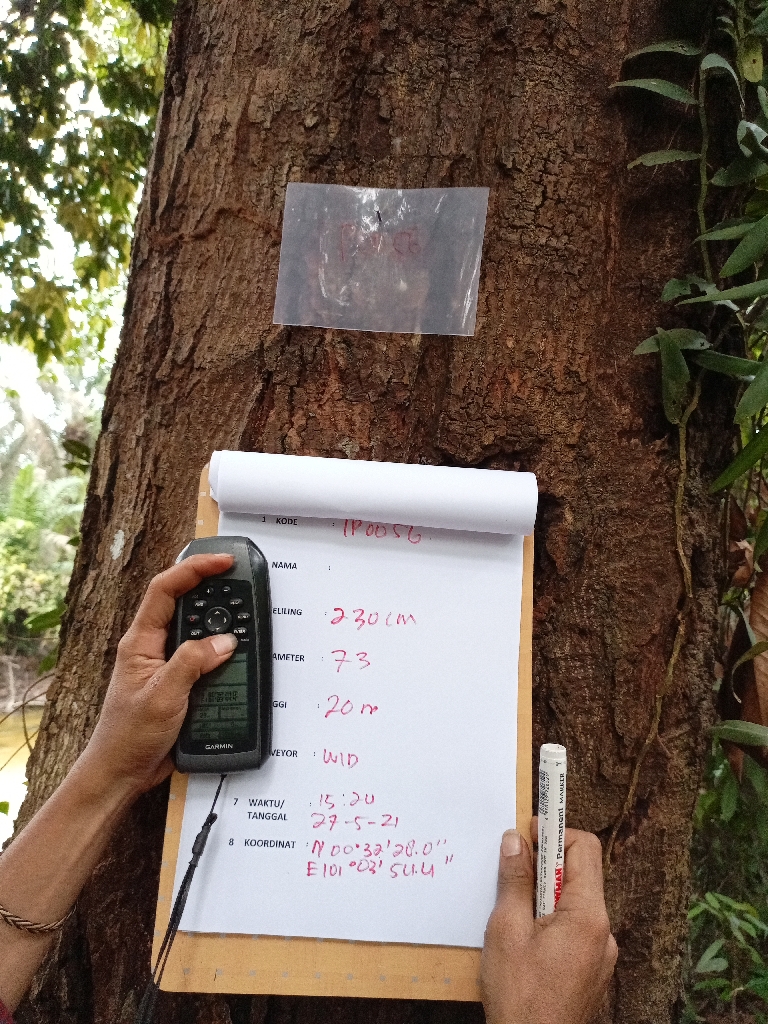 1 KODE : IP0056
NAMA :
ELILING : 230cm
AMETER : 73
GGI : 20 m
VEYOR : WID
7 WAKTU/ TANGGAL : 15:20
27-5-21
8 KOORDINAT : N 00°32'28.0"
E101°03'54.4"
GARMIN
Permanent MARKER
OWMAN